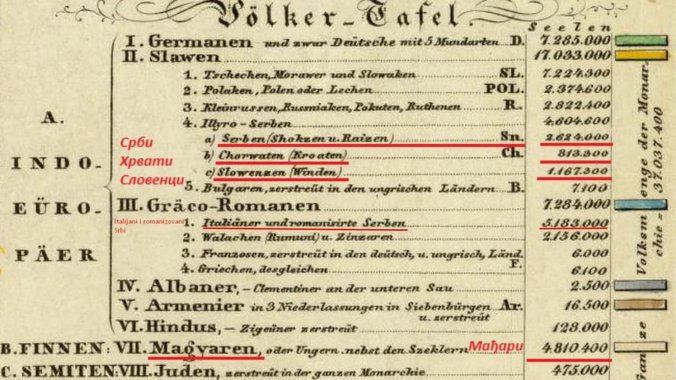 Völker-Tafel.
Seelen
I. Germanen und zwar Deütsche mit 5 Mundarten D. 7.285.000
II. Slawen 17.033.000
1. Tschechen, Morawer und Slowaken SL. 7.224.300
2. Polaken, Polen oder Lechen POL. 2.374.600
3. Kleinrussen, Rusmiaken, Pokuten, Ruthenen R. 2.822.400
4. Illyro-Serben 4.604.600
Срби a) Serben (Shokzen u. Raizen) Sn. 2.624.000
Хрвати b) Chorwaten (Kroaten) Ch. 813.300
Словенци c) Slowenzen (Winden) 1.167.300
5. Bulgaren, zerstreüt in den ungrischen Ländern B. 7.100
III. Gräco-Romanen 7.284.000
Italijani i romanizovani Srbi
1. Italiäner und romanisirte Serben 5.183.000
2. Walachen (Rumuni) u. Zinzaren 2.156.000
3. Franzosen, zerstreüt in den deütsch, u. ungrisch, Länd. F. 6.000
4. Griechen, desgleichen 6.100
IV. Albaner, – Clementiner an der unteren Sau 2.500
V. Armenier in 3 Niederlassungen in Siebenbürgen u. zerstreüt Ar. 16.500
VI. Hindus, – Zigeüner zerstreüt 128.000
A.
INDO-
EÜRO-
PÄER
B. FINNEN: VII. Magyaren, oder Ungern nebst den Szeklern Мађари 4.810.400
C. SEMITEN: VIII. Juden, zerstreüt in der ganzen Monarchie 475.000
Ganze Volksmenge der Monarchie – 37.037.400